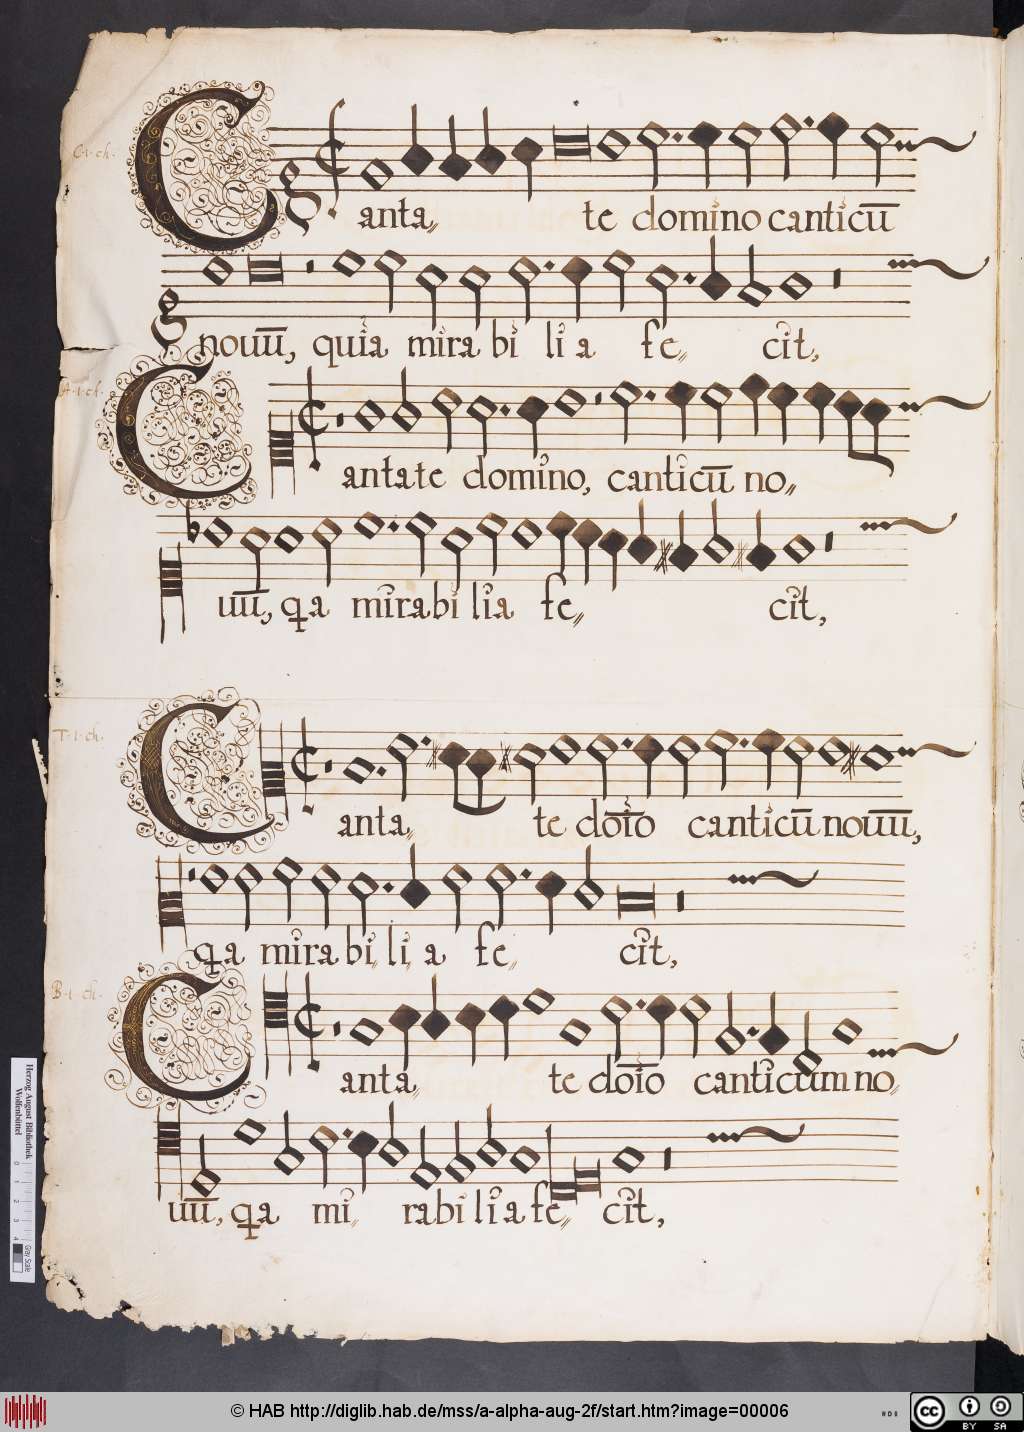 C·1·ch·
Canta〃 te domino canticū
nouū, quia mirabilia fe〃 cit,
A·1·ch·
Cantate domino, canticū no〃
uū, qa mirabi lia fe〃 cit,
T·1·ch·
Canta〃 te doīo canticū nouū,
qa mirabi〃li〃a fe〃 cit,
B·1·ch·
Canta〃 te doīo canticum no〃
uū, qa mi〃 rabilia fe〃 cit,
Herzog August Bibliothek
Wolfenbüttel
0 1 2 3 4
Gray Scale
© HAB http://diglib.hab.de/mss/a-alpha-aug-2f/start.htm?image=00006
cc BY SA